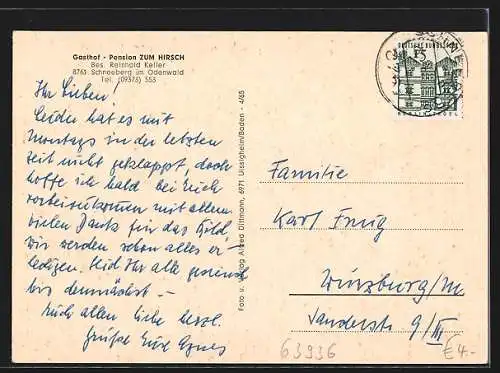 Gasthof - Pension ZUM HIRSCH
Bes. Reinhold Keller
8761 Schneeberg im Odenwald
Tel. (09373) 553
Ihr Lieben!
Leider hat es mit
Montags in der letzten
Zeit nicht geklappt, doch
hoffe ich bald bei Euch
vorbeizukommen mit allem.
Vielen Dank für das Bild,
wir werden schon alles er-
ledigen. Seid Ihr alle gesund
bis demnächst –
Euch allen liebe herzl.
Grüße Eure Agnes
Foto u. Verlag Alfred Dittmann, 6971 Uissigheim/Baden - 4/65
DEUTSCHE BUNDESPOST
Familie
Karl
Würzburg/M
Sanderstr. 9/III
63936
€4.-